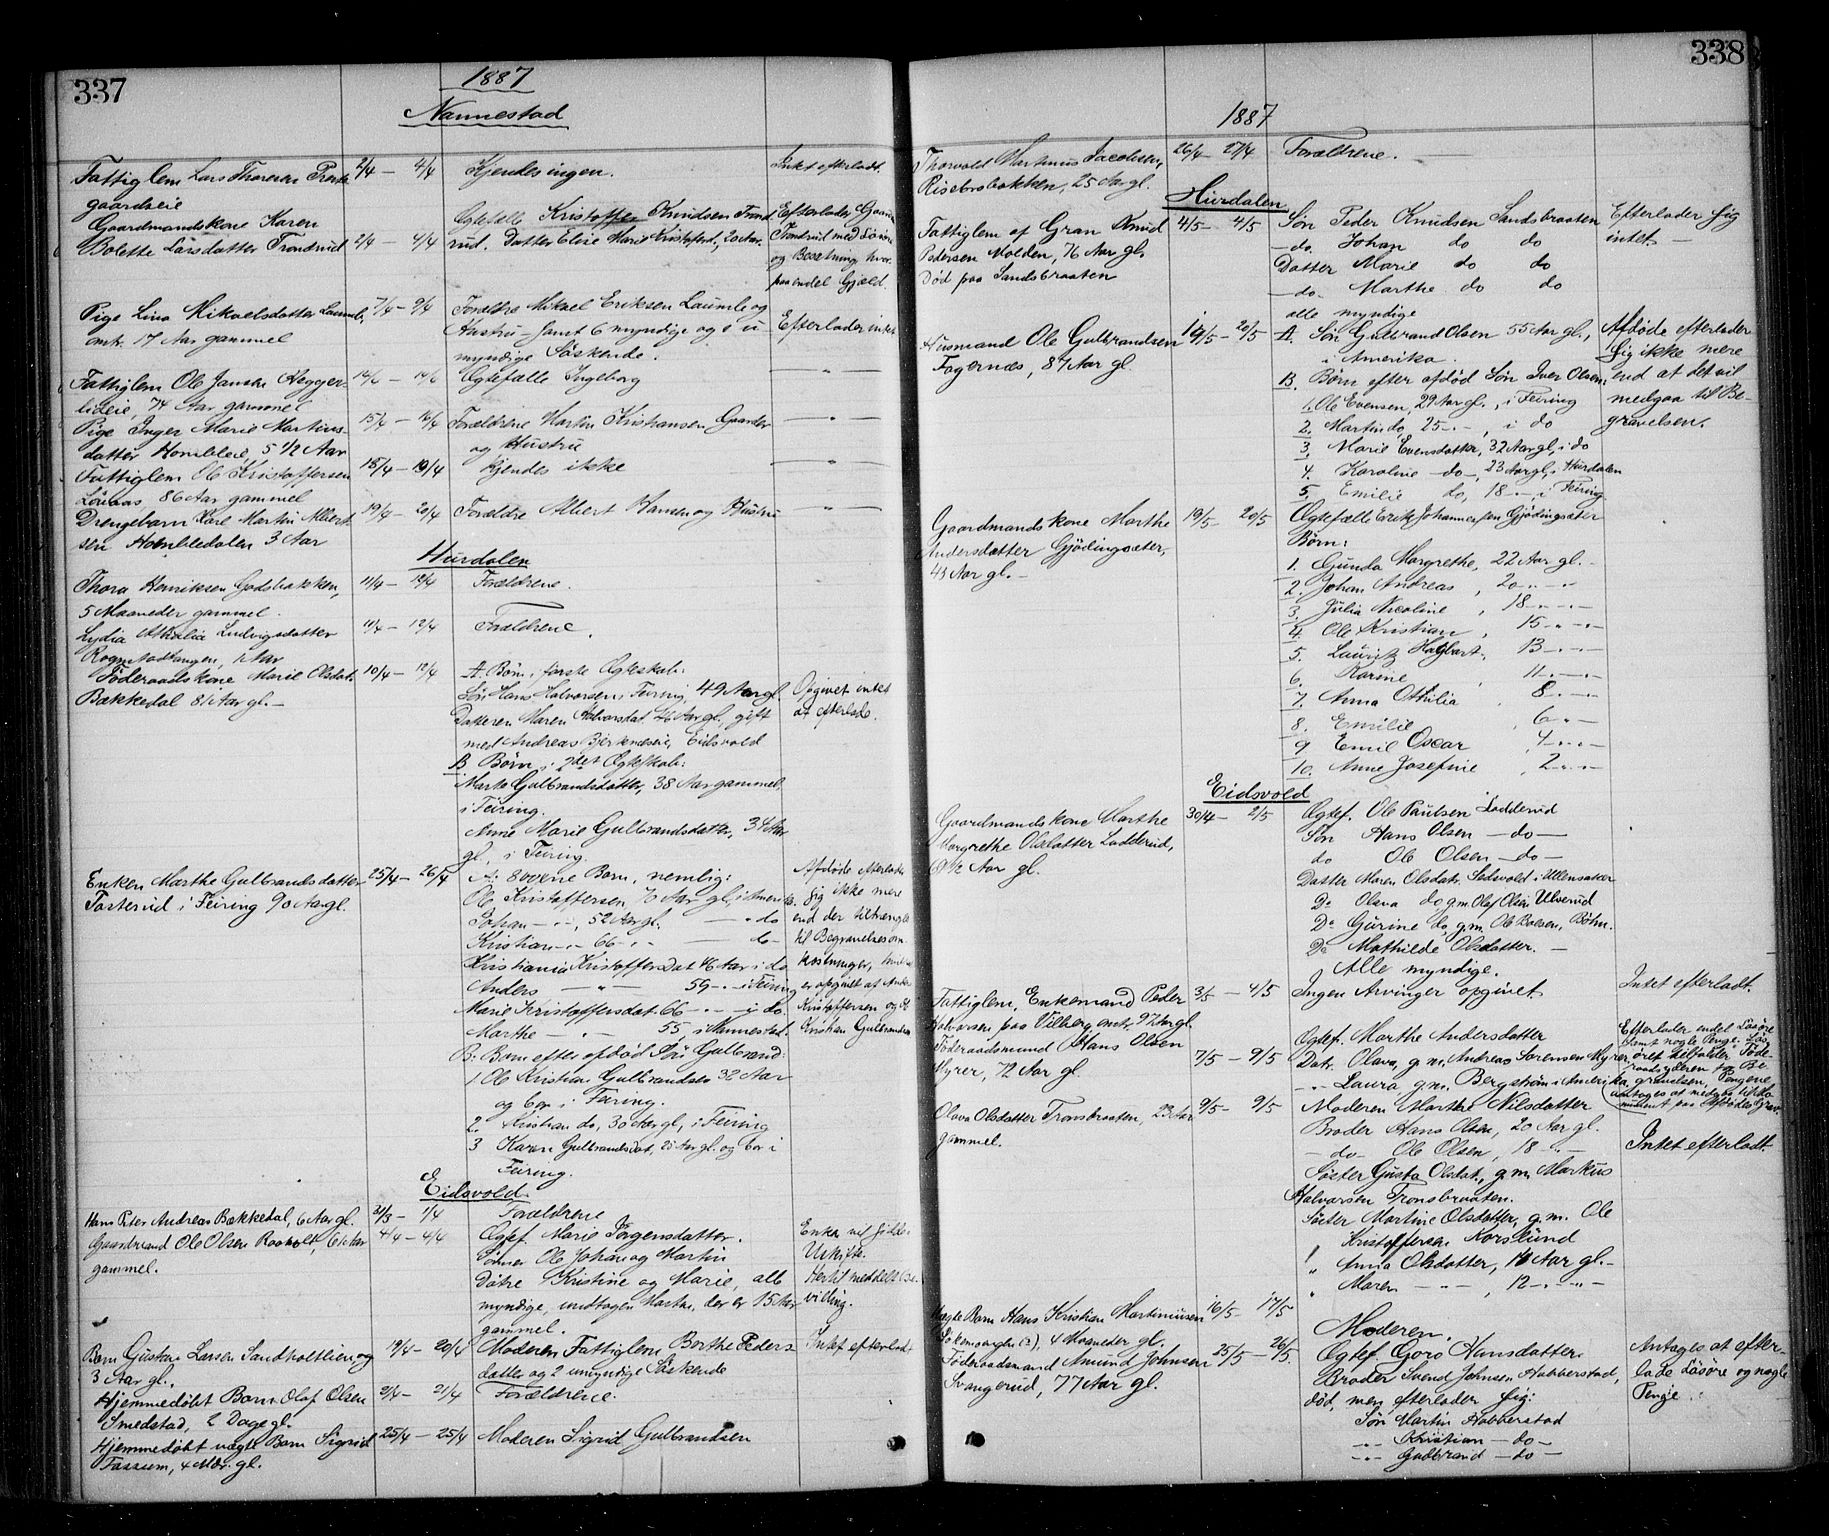 337
1887
Nannestad
Fattiglem Lars Thoresen
gaardseie
2/4 — 4/4
Kjendes ingen.
Intet efterladt.
Gaardmandskone Karen
Bolette Larsdatter Trondrud
2/4 — 4/4
Egtefælle Kristoffer Knudsen Trond
rud. Datter Elise Marie Kristofersd., 20 Aar.
Efterlader Gaarden
Trondrud med Løsøre
og Besetning hvor-
paa endel Gjæld.
Pige Lina Mikaelsdatter
omtr. 17 Aar gammel
7/4 — 9/4
Forældre Mikael Eriksen og
Hustru — samt 6 myndige og 2 u-
myndige Søskende.
Efterlader intet
Fattiglem Ole Jansen Hegger-
lieie, 74 Aar gammel
14/4 — 14/4
Egtefælle Ingeborg
— " —
Pige Inger Marie Martins-
datter Hombleie, 5 1/2 Aar
15/4 — 16/4
Forældrene Martin Kristiansen
og Hustru
— " —
Fattiglem Ole Kristoffersen
86 Aar gammel
18/4 — 19/4
Kjendes ikke
— " —
Drengebarn Karl Martin Albert
sen Hombledalen 3 Aar
19/4 — 20/4
Forældre Albert Hansen og Hustru
— " —
Hurdalen
Thora Henriksen Godsbakken,
5 Maaneder gammel.
11/4 — 12/4
Forældrene.
Lydia Athalia Ludvigsdatter
Rognstadtangen, 1 Aar
11/4 — 12/4
Forældrene.
Føderaadskone Marie Olsdat.
Bakkedal 81 Aar gl. —
10/4 — 12/4
A. Børn i første Egteskab:
Søn Hans Halvorsen i Feiring, 49 Aar gl.
Datteren Maren Halvorsdat. 46 Aar gl., gift
med Andreas Bjerknæseie, Eidsvold
B Børn i 2det Egteskab:
Marte Gulbrandsdatter, 38 Aar gammel
i Feiring.
Anne Marie Gulbrandsdatter, 34 Aar
gl., i Feiring.
Opgivet intet
at efterlade.
Enken Marthe Gulbrandsdatter
Fosterud i Feiring 90 Aar gl.
25/4 — 26/4
A: 8 voxne Børn, nemlig:
Ole Kristoffersen, 70 Aar gl., i Amerika.
Johan — " —, 52 Aar gl. — " do
Kristian — " — 66 — " — do —
Kristiania Kristoffersdat 46 Aar i do
Anders — " — 59 — " — i Feiring
Marie Kristoffersdat. 66 — " — i do.
Marthe — " — 55 i Nannestad.
B: Børn efter afdød Søn Gulbrand:
1 Ole Kristian Gulbrandsen 32 Aar
og bor i Feiring.
2. Kristian do, 30 Aar gl., i Feiring
3 Karen Gulbrandsdat, 25 Aar gl. og bor i
Feiring.
Afdøde efterlader
sig ikke mere
end der tiltrænges
til Begravelsesom-
kostninger,
er opgivet af Anders
Kristoffersen og
Kristian Gulbrandsen
Eidsvold.
Hans Peter Andreas Bækkedal, 6 Aar gl.
31/3 — 1/4
Forældrene
Gaardmand Ole Olsen Raaholt, 61 Aar
gammel.
4/4 — 4/4
Egtef. Marie Jørgensdatter.
Sønner Ole Johan og Martin
Døtre Kristine og Marie, alle
myndige, undtagen Martin, der er 15 Aar
gammel.
Enken vil
Uskifte.
meddelt Be-
villing.
Barn Gustav Larsen Sandholtlien og
3 Aar gl.
19/4 — 20/4
Moderen Fattiglem Berthe Peders
datter og 2 umyndige Søskende
Intet efterladt
Hjemmedøbt Barn Olaf Olsen
Smedstad, 2 Dage gl.
21/4 — 21/4
Forældrene
Hjemmedøbt uægte Barn Sigrud
Fossum, 4 Mdr. gl.
25/4 — 25/4
Moderen Sigrid Gulbrandsen
338
1887
Thorvald Martinus Jacobsen,
Risebrobakken, 25 Aar gl.
26/4 — 27/4
Forældrene.
Hurdalen
Fattiglem af Gran Knud
Pedersen Molden, 76 Aar gl.
Død paa Sandsbraaten
4/5 — 4/5
Søn Peder Knudsen Sandsbraaten
— do. Johan do do
Datter Marie do do
— do — Marthe do do
alle myndige
Efterlader sig
intet —
Husmand Ole Gulbrandsen
Fagernæs, 87 Aar gl.
19/5 — 20/5
A. Søn Gulbrand Olsen 55 Aar gl.,
i Amerika.
B. Børn efter afdød Søn Iver Olsen:
1. Ole Evensen, 29 Aar gl., i Feiring
2. Martin do, 25 — " —, i do
3. Marie Evensdatter, 32 Aar gl., i do
4. Karoline — do —, 23 Aar gl., i Hurdalen
5. Emilie do, 18 — " —, i Feiring
Afdøde efterlader
sig ikke mere
end at det vil
medgaa til Be-
gravelsen.
Gaardmandskone Marthe
Andersdatter Gjødingsæter,
43 Aar gl. —
19/5 — 20/5
Egtefælle Erik Johannessen Gjødingsæter
Børn:
1. Gunda Margrethe, 22 Aar gl. —
2. Johan Andreas, 20 — " —
3. Julia Nicoline, 18 — " —
4. Ole Kristian, 15 — " —
5. Lauritz Hagbart, 13 — " —
6. Karine, 11 — " —
7. Anna Othilia, 8 — " —
8. Emilie, 6 — " —
9 Emil Oscar, 4 — " —
10. Anne Josefine, 2 — " —
Eidsvold
Gaardmandskone Marthe
Margrethe Olsdatter Ladderud,
Aar gl.
30/4 — 2/5
Egtef. Ole Paulsen Ladderud
Søn Hans Olsen — do —
do Ole Olsen — do —
Datter Maren Olsdatr. i Ullensaker
Do Olava do g.m. Olef Olsen Ulverud
Do Gurine do, g.m. Ole Boesen, Bøhn.
Do Mathilde Olsdatter. —
Alle myndige.
Fattiglem, Enkemand Peder
Halvorsen paa Vilberg omtr. 97 Aar gl.
3/5 — 4/5
Ingen Arvinger opgivet
Intet efterladt.
Føderaadsmand Hans Olsen
Myrer, 72 Aar gl.
7/5 — 9/5
Egtef. Marthe Andersdatter
Datr. Olava, g.m. Andreas Sørensen Myrer,
— " — Laura g.m. Bergstrøm i Amerika,
Efterlader endel Løsøre
samt nogle Penge. Løs-
øret tilfalder Føde-
raadsgiveren for Be-
gravelsen, Pengene
antages at medgaa til Mo-
nument paa Afdødes Grav
Olava Olsdatter Tronsbraaten, 23 Aar
gammel.
9/5 — 9/5
Moderen Marthe Nilsdatter
Broder Hans Olsen, 20 Aar gl.
— do — Ole Olsen, 18 — " —
Søster Gusta Olsdat., g.m. Markus
Halvorsen Tronsbraaten.
Søster Martine Olsdatter, g.m. Ole
Kristoffersen Korslund
" Anna Olsdatter, 16 Aar gl. —
" Maren — " —, 12 — " —
Intet efterladt.
Uægte Barn Hans Kristian Martiniusen
(?), 4 Maaneder gl.
16/5 — 17/5
Moderen.
Føderaadsmand Amund Johnsen
Svangerud, 77 Aar gl.
25/5 — 26/5.
Egtef Goro Hansdatter
Broder Svend Johnsen Habberstad,
død, men efterlader sig:
Søn Martin Habberstad
— " — Kristian — do —
— " — Gulbrand — do —
Antages at efter-
lade Løsøre og nogle
Penge.